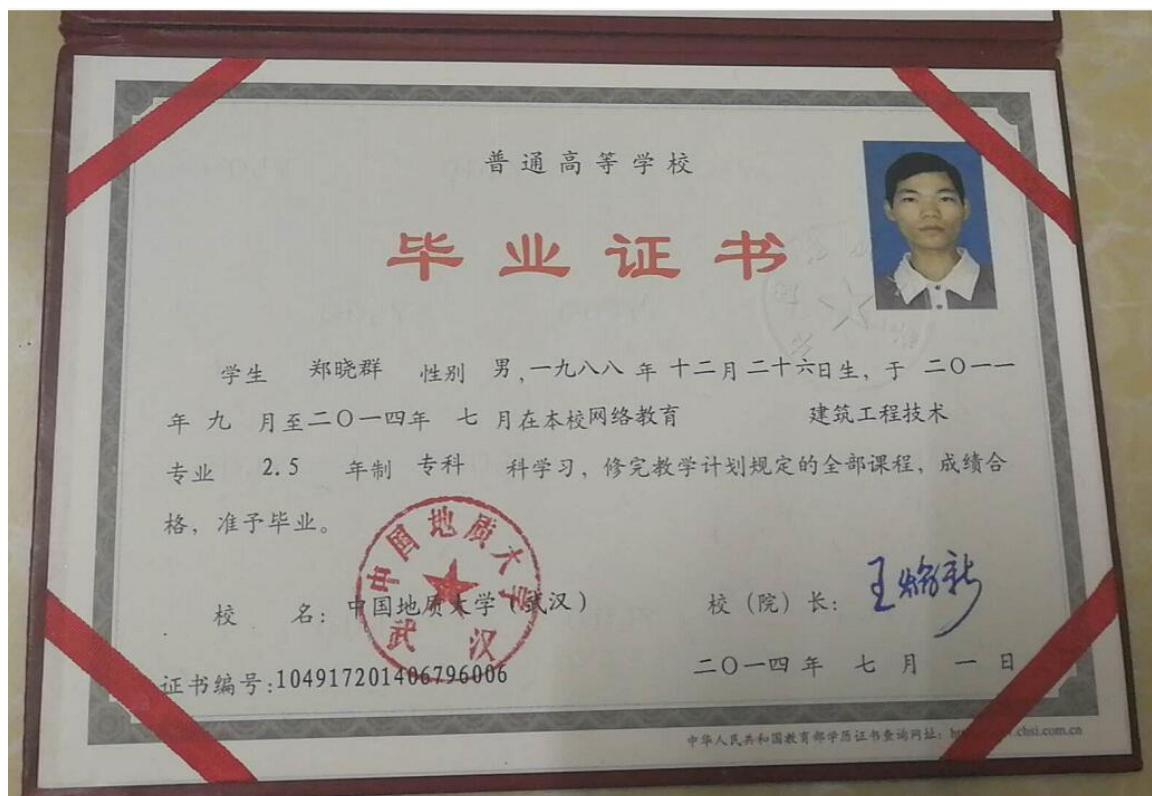 普通高等学校
毕业证书
学生 郑晓群 性别 男,一九八八 年 十二月二十六日生, 于 二〇一一
年 九 月至二〇一四年 七 月在本校网络教育 建筑工程技术
专业 2.5 年制 专科 科学习, 修完教学计划规定的全部课程, 成绩合
格, 准予毕业。
中国地质大学
武汉
校 名: 中国地质大学(武汉) 校(院)长:
证书编号:104917201406796006 二〇一四年 七 月 一 日
中华人民共和国教育部学历证书查询网址: chsi.com.cn